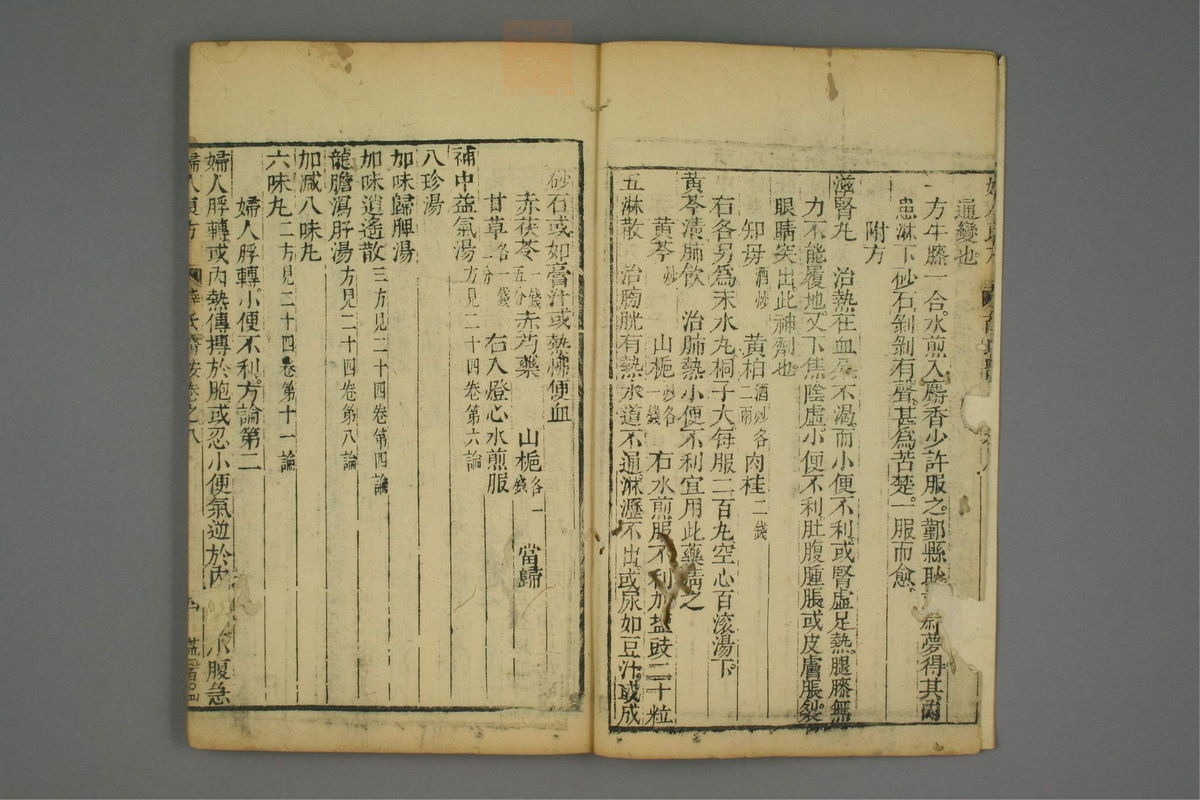 通變也
一方牛膝一合水煎入麝香少許服之鄞縣耿 夢得其內
患淋下砂石剝剝有聲甚爲苦楚一服而愈
附方
滋腎丸 治熱在血分不渴而小便不利或腎虛足熱腿膝無
力不能履地又下焦陰虛小便不利肚腹腫脹或皮膚脹裂
眼睛突出此神劑也
知母酒炒 黃柏酒炒各二兩 肉桂二錢
右各另爲末水丸桐子大每服二百丸空心百滾湯下
黃芩清肺飲 治肺熱小便不利宜用此藥清之
黃芩炒 山梔炒各一錢 右水煎服不利加盐豉二十粒
五淋散 治膀胱有熱水道不通淋瀝不出或尿如豆汁或成
砂石或如膏汁或熱怫便血
赤茯苓一錢五分 赤芍藥 山梔各一錢 當歸
甘草各一錢二分 右入燈心水煎服
補中益氣湯方見二十四卷第六論
八珍湯
加味歸脾湯
加味逍遙散三方見二十四卷第四論
龍膽瀉肝湯方見二十四卷第八論
加減八味丸
六味丸二方見二十四卷第十一論
婦人脬轉小便不利方論第二
婦人脬轉或內熱傳搏於胞或忍小便氣逆於內 小腹急
婦人良方 薛氏醫按卷之八